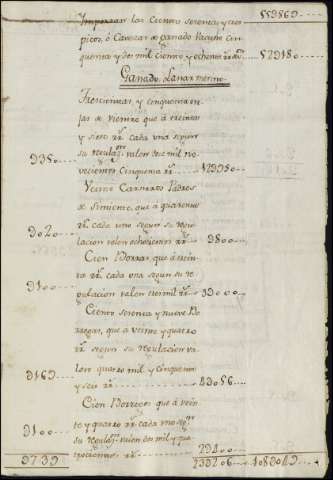 559869
Importan las Ciento setenta y tres
picos, o Cavezas de ganado Vacuno Cin-
quenta y dos mil Ciento y ochenta rr.s
52180
Ganado Lanar merino
Trescientas, y cinquenta ove-
jas de Vientre que á treinta
y siete rr. cada una segun
su regulaz.on valen doce mil no-
vecientos Cinquenta rr.
350
12950
Veinte Carneros Padres
de simiente, que á quarenta
rr. cada uno segun su regu-
lacion valen ochocientos rr.
020
800
Cien Borras, que á trein-
ta rr. cada una segun su re-
gulacion valen tres mil rr.
100
3000
Ciento sesenta y nueve Bo-
rregas, que á Veinte y quatro
rr. segun su regulacion va-
len quatro mil, y cinquenta
y seis rr.
169
4056
Cien Borregos que á vein-
te y quatro rr. cada uno seg.n
su regulaz.on valen dos mil y qua-
trocientos rr.
100
2400
739
23206